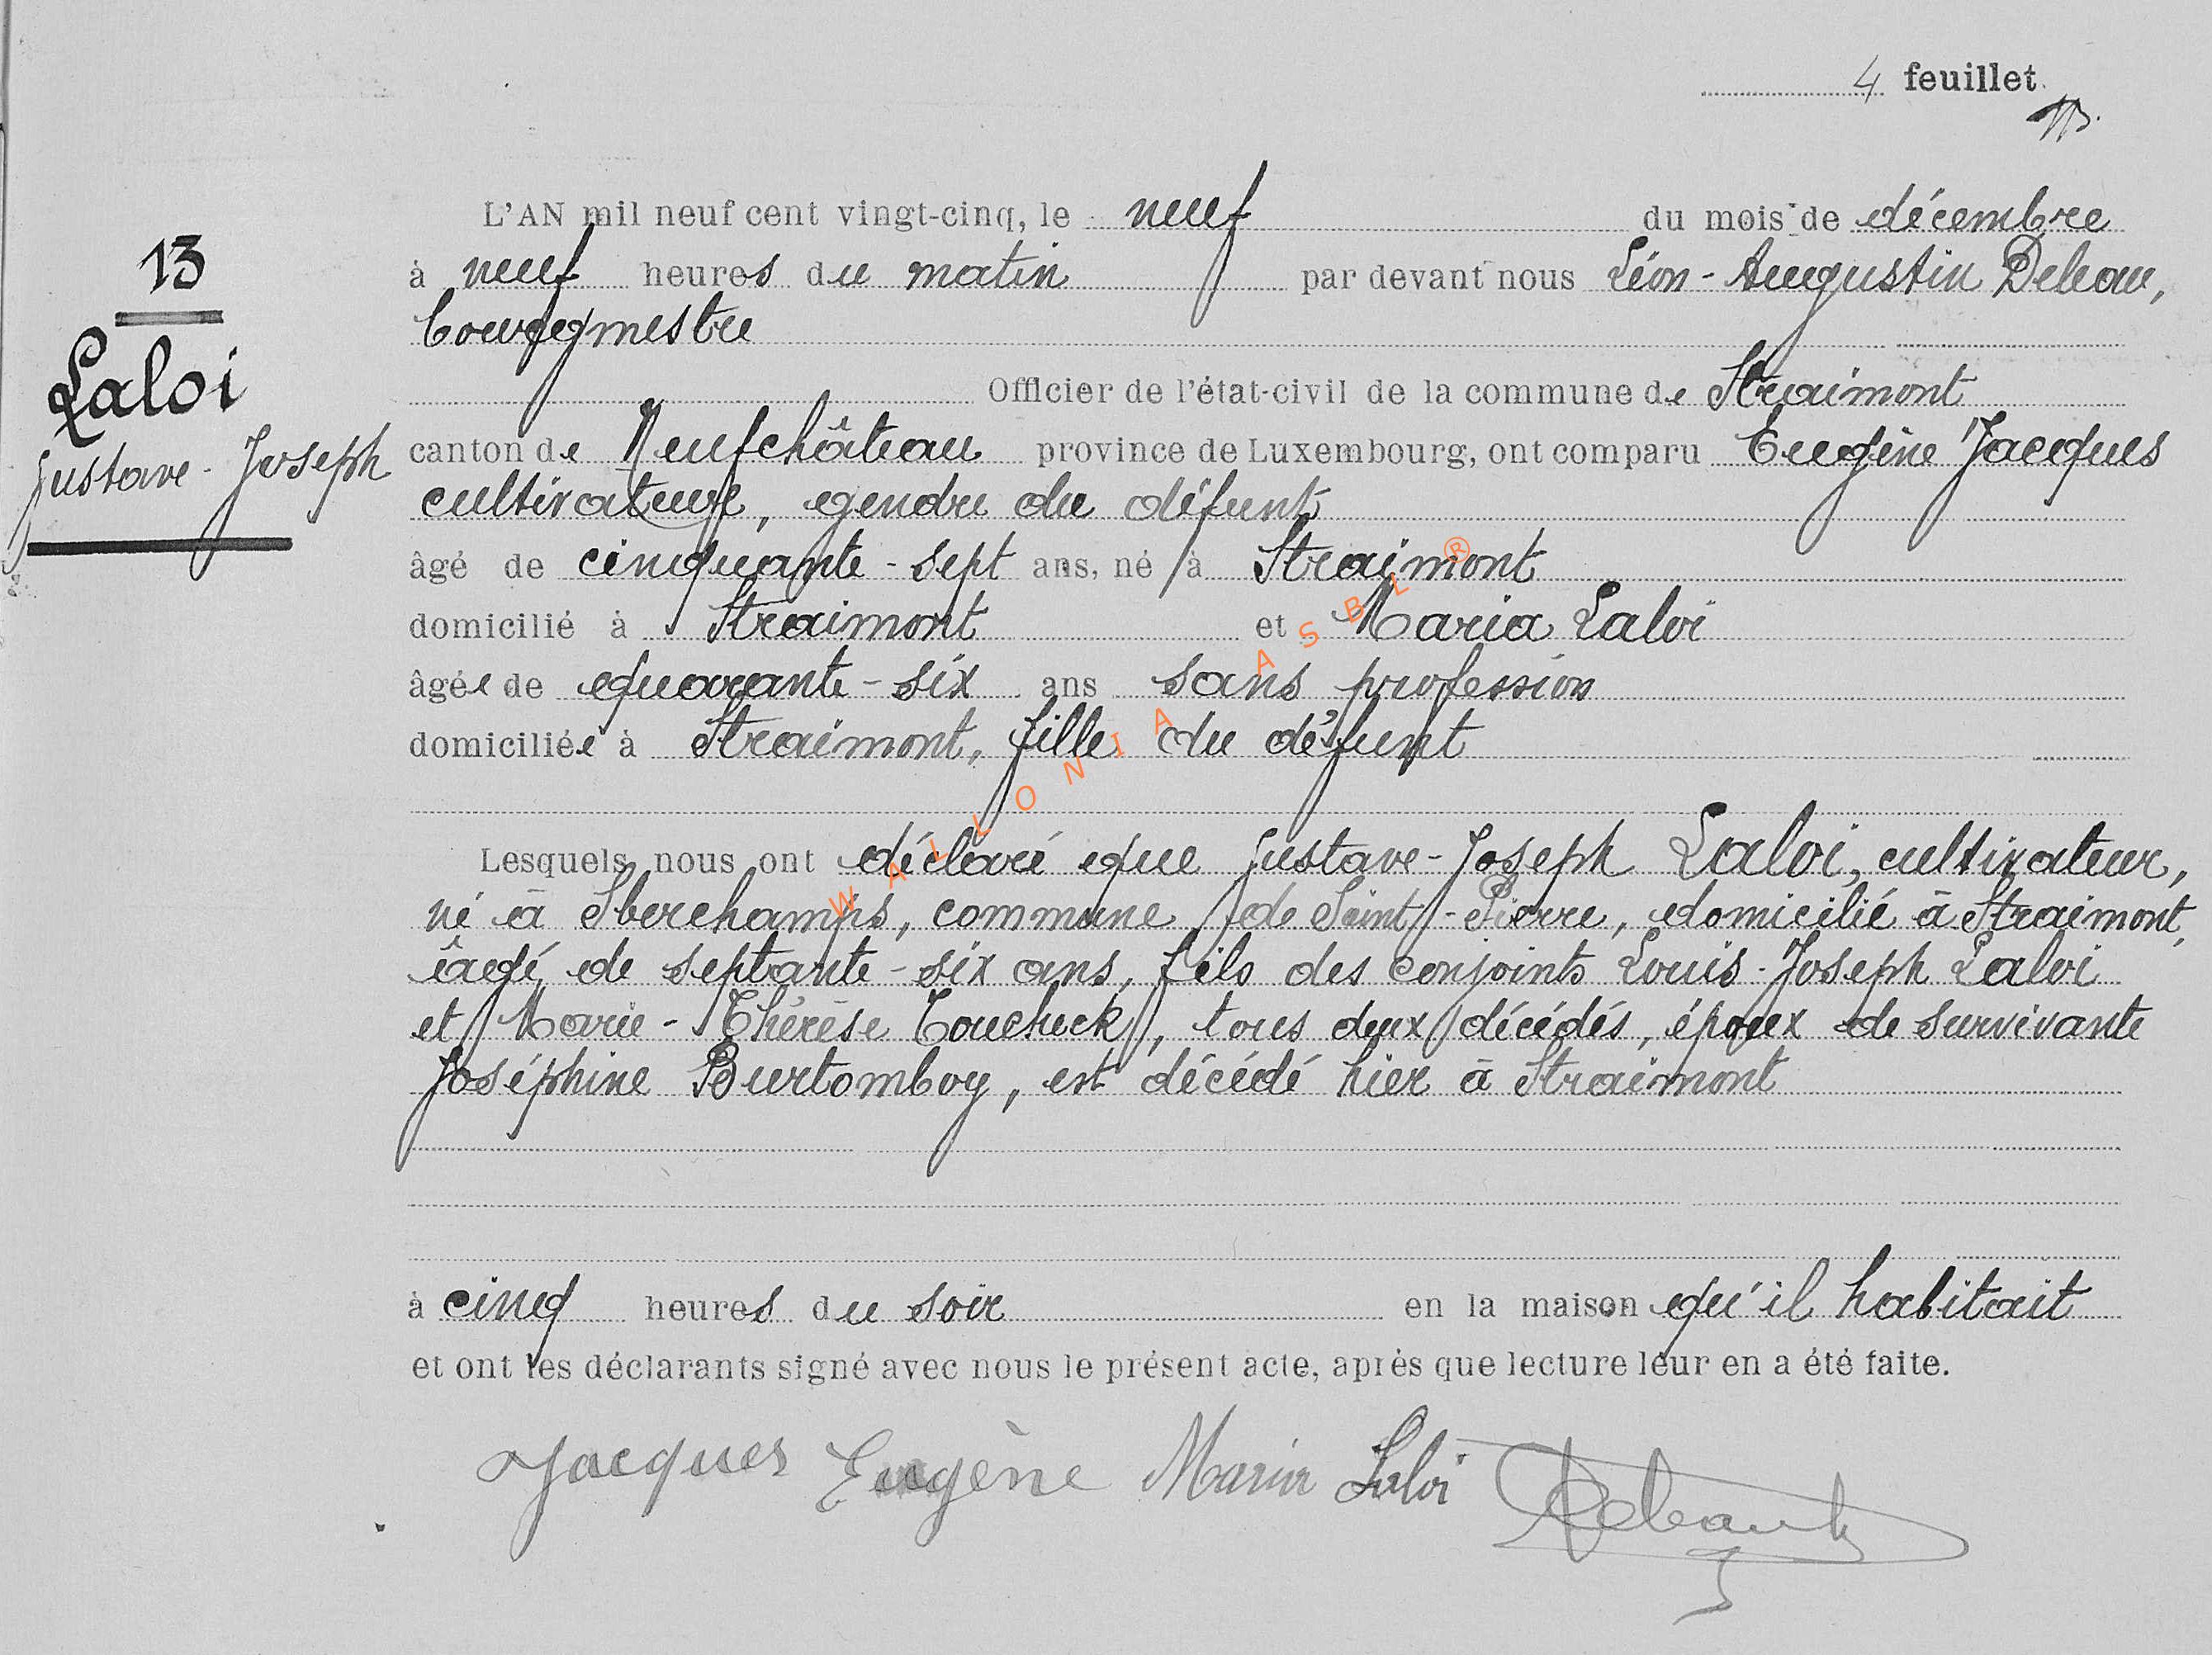 4 feuillet
L'AN mil neuf cent vingt-cinq, le neuf du mois de décembre
à neuf heures du matin par devant nous Léon-Augustin Deleau,
bourgmestre
Officier de l'état-civil de la commune de Straimont
canton de Neufchâteau province de Luxembourg, ont comparu Eugène Jacques
cultivateur, gendre du défunt
âgé de cinquante-sept ans, né à Straimont
domicilié à Straimont et Maria Laloi
âgée de quarante-six ans sans profession
domiciliée à Straimont, fille du défunt
Lesquels nous ont déclaré que Gustave-Joseph Laloi, cultivateur,
né à Sberchamps, commune de Saint-Pierre, domicilié à Straimont,
âgé de septante-six ans, fils des conjoints Louis-Joseph Laloi
et Marie-Thérèse, tous deux décédés, époux de survivante
Joséphine Burtomboy, est décédé hier à Straimont
à cinq heures du soir en la maison qu'il habitait
et ont les déclarants signé avec nous le présent acte, après que lecture leur en a été faite.
Jacques Eugène Maria Laloi
13
Laloi
Gustave-Joseph
WALLONIA ASBL ®